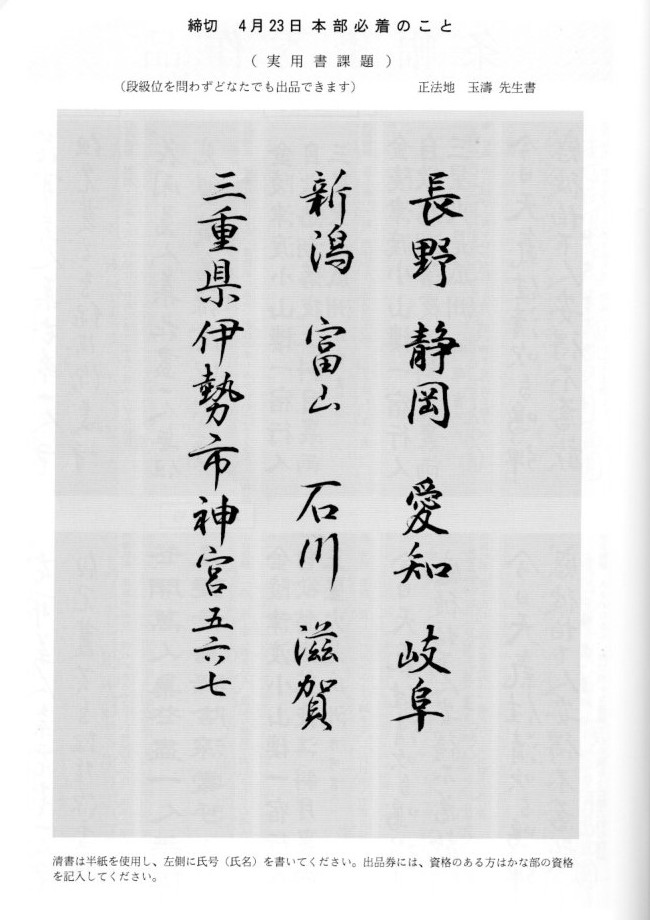 締切　4月23日本部必着のこと
（実用書課題）
（段級位を問わずどなたでも出品できます）　正法地　玉濤　先生書
長野　静岡　愛知　岐阜
新潟　富山　石川　滋賀
三重県伊勢市神宮五六七
清書は半紙を使用し、左側に氏号（氏名）を書いてください。出品券には、資格のある方はかな部の資格
を記入してください。